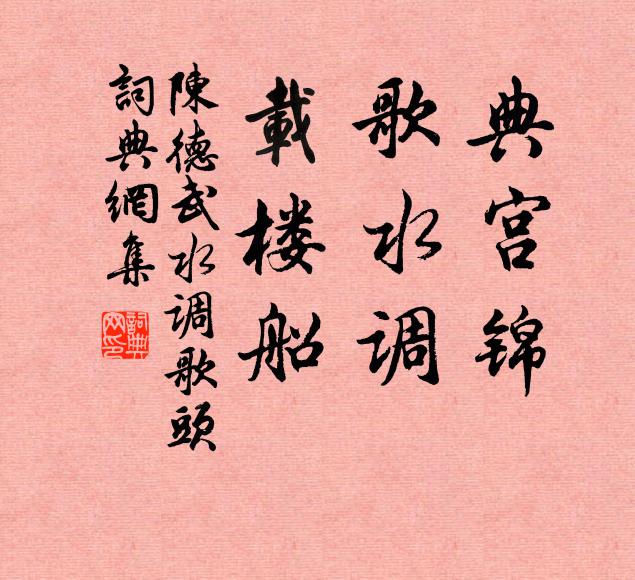 典宫锦
歌水调
載楼船
陳德武水调歌頭
詞典網集
詞典网印